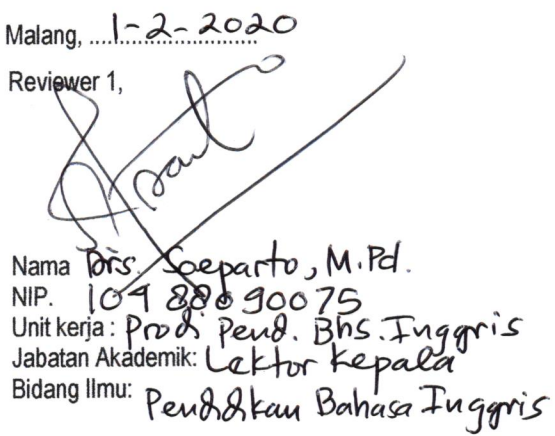 Malang, 1-2-2020
Reviewer 1,
Nama Drs. Soeparto, M.Pd.
NIP. 104 88090075
Unit kerja : Prodi Pend. Bhs. Inggris
Jabatan Akademik: Lektor Kepala
Bidang Ilmu: Pendidikan Bahasa Inggris